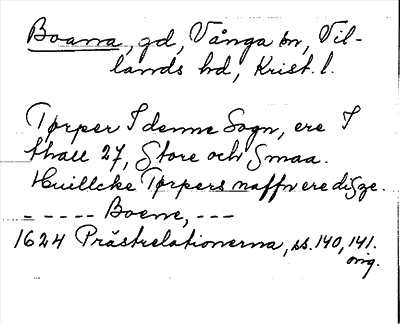 Boarna, gd, Vånga sn, Vil-
lands hd, Krist. l.
Tørper I denne Sogn, ere I
thall 27, Store och Smaa.
Huillcke Tørpers naffn ere disse.
- - - - - Boerne, - - -
1624 Prästrelationerna, ss. 140, 141.
orig.